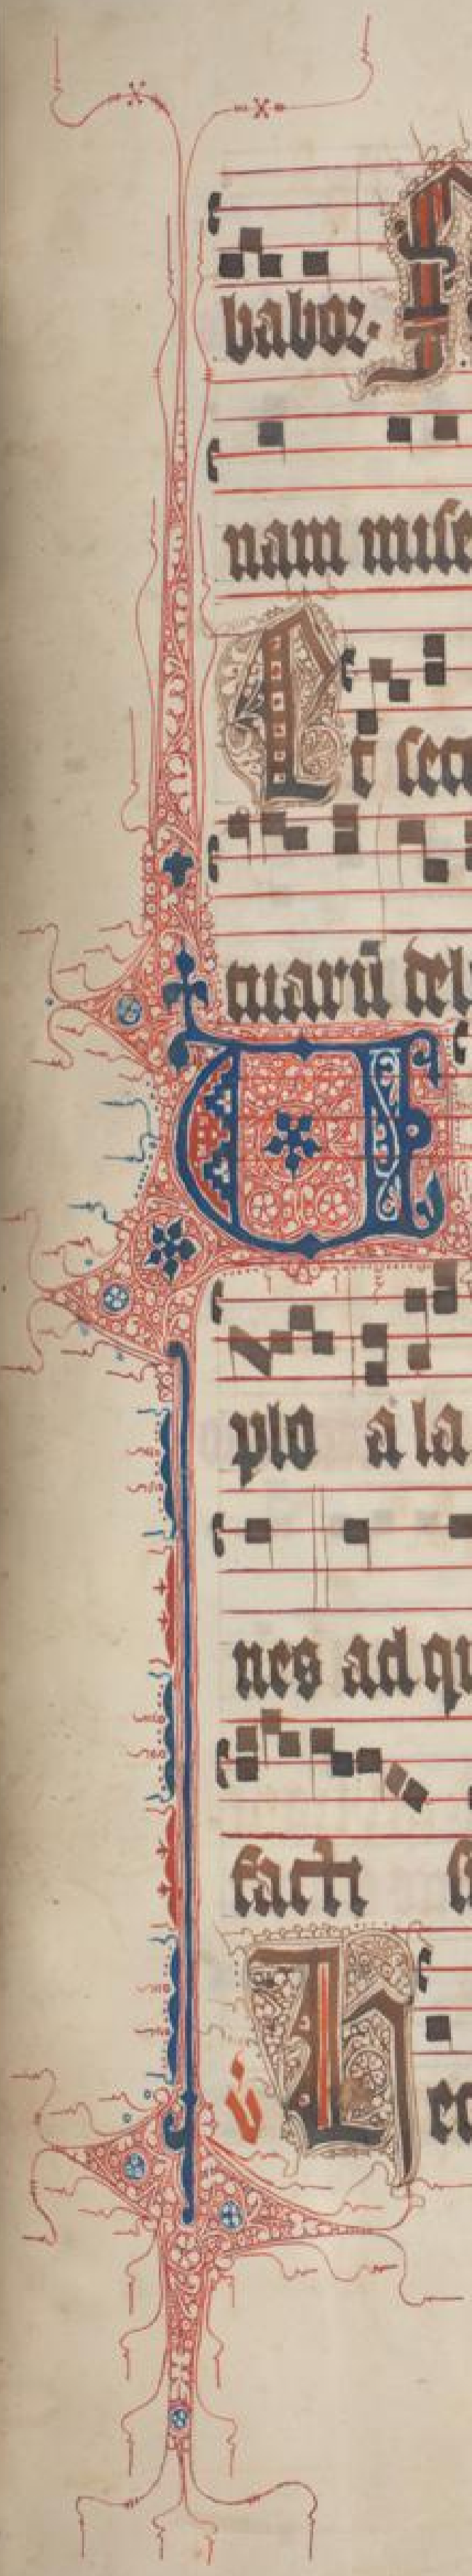 babor.
nam mise
Et secu
tuarū del
U
plo a la
nes ad qu
facti s
v. Hec